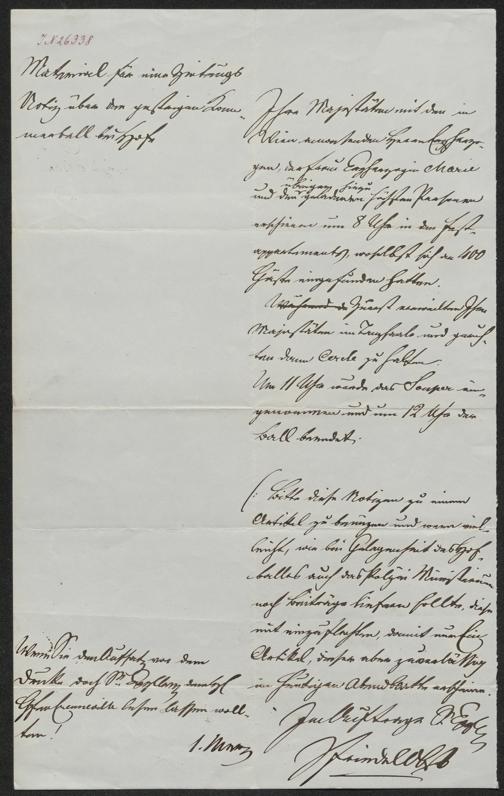 I.N 26338
Material für eine Zeitungs
Notiz über den gestrigen Kam-
merball bei Hofe
Ihre Majestäten mit den in
Wien anwesenden Herren Erzherzo-
gen, der Frau Erzherzogin Marie
und den übrigen hiezu geladenen höchsten Personen
erschienen um 8 Uhr in den Fest-
appartements, woselbst sich an 400
Gäste eingefunden hatten.
Während d Zuerst verweilten Ihre
Majestäten im Tanzsaale und geruh-
ten dann Cercle zu halten.
Um 11 Uhr wurde das Souper ein-
genommen und um 12 Uhr der
Ball beendet.
(: Bitte diese Notizen zu einem
Artikel zu benützen und wenn viel-
leicht, wie bei Gelegenheit des Hof-
balles auch das Polizei Ministerium
noch Beiträge liefern sollte, diese
mit einzuflechten, damit nur Ein
Artikel, dieser aber zuverlässig
im heutigen Abendblatte erscheine.
Im Auftrage Sr Exz
Wenn Sie den Aufsatz vor dem
Drucke doch Sr Exzellenz
lesen lassen woll-
ten!
1. März